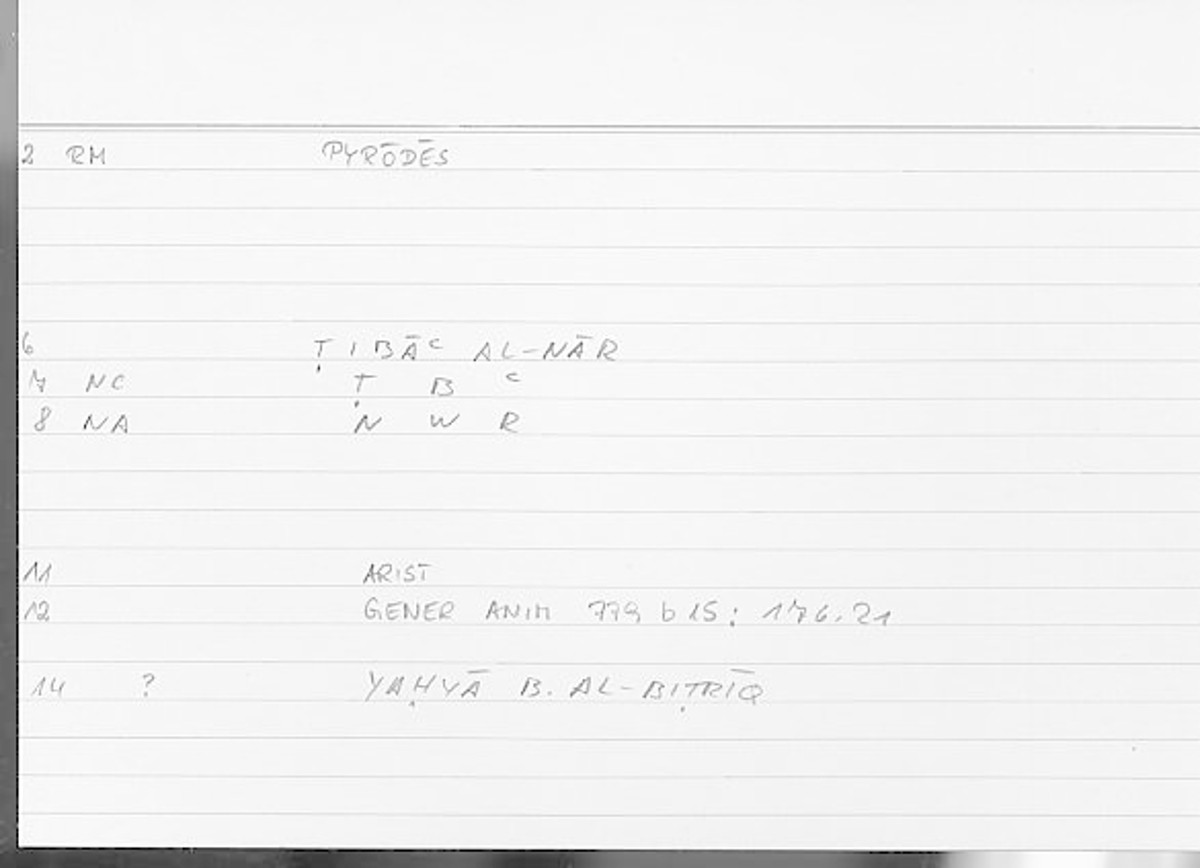 2 RM PYRŌDĒS
6 ṬIBĀʿ AL-NĀR
7 NC Ṭ B ʿ
8 NA N W R
11 ARIST
12 GENER ANIM 779 b 15 : 176.21
14 ? YAḤYĀ B. AL-BIṬRĪQ